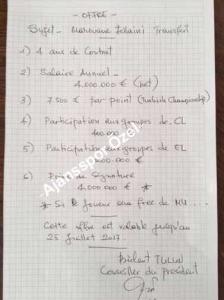 - OFFRE -
Sujet - Marouane Felaini Transfert
1) 4 ans de Contrat
2) Salaire Annuel -
4.000.000 € (net)
3) 7.500 € par point (Turkish Championship)
4) Participation aux groupes de CL
400.000
5) Participation aux groupes de EL
000.000 €
6) Signature
4.000.000 € *
* Si Joueur free de MU...
Cette offre est valable jusqu'au
25 Juillet 2017.
Bülent TULUN
Conseiller du President
Ajansspor Özel